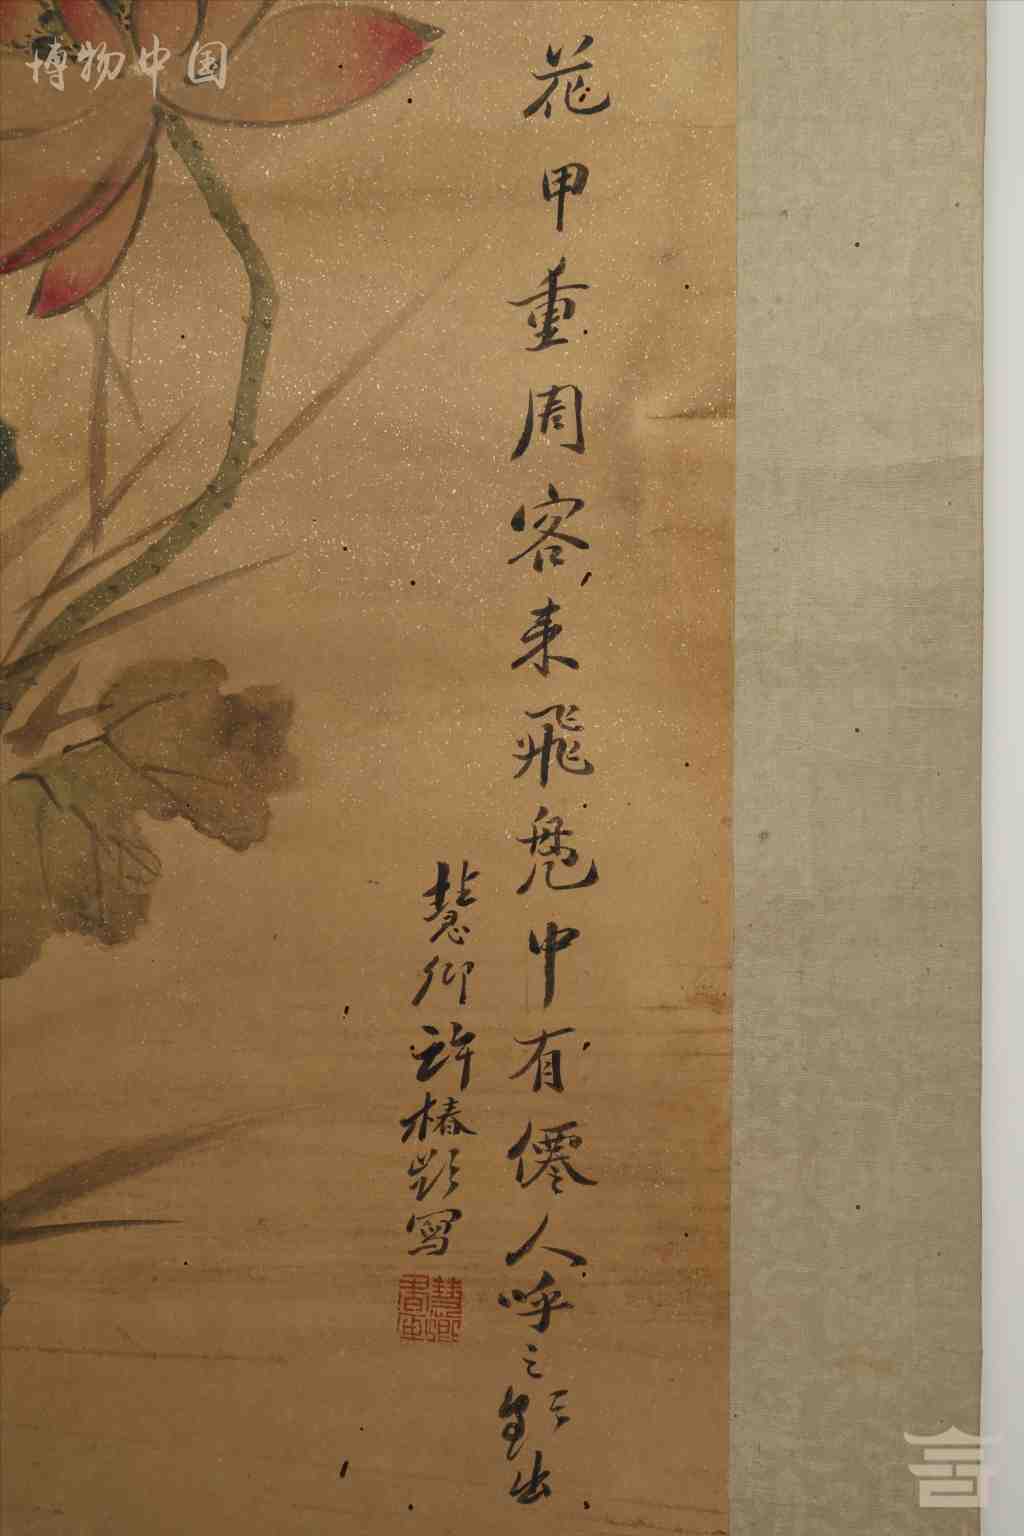 博物中国
花甲重周客来飛中有僊人呼之欲出
慧仰許椿齡寫
慧仰書画